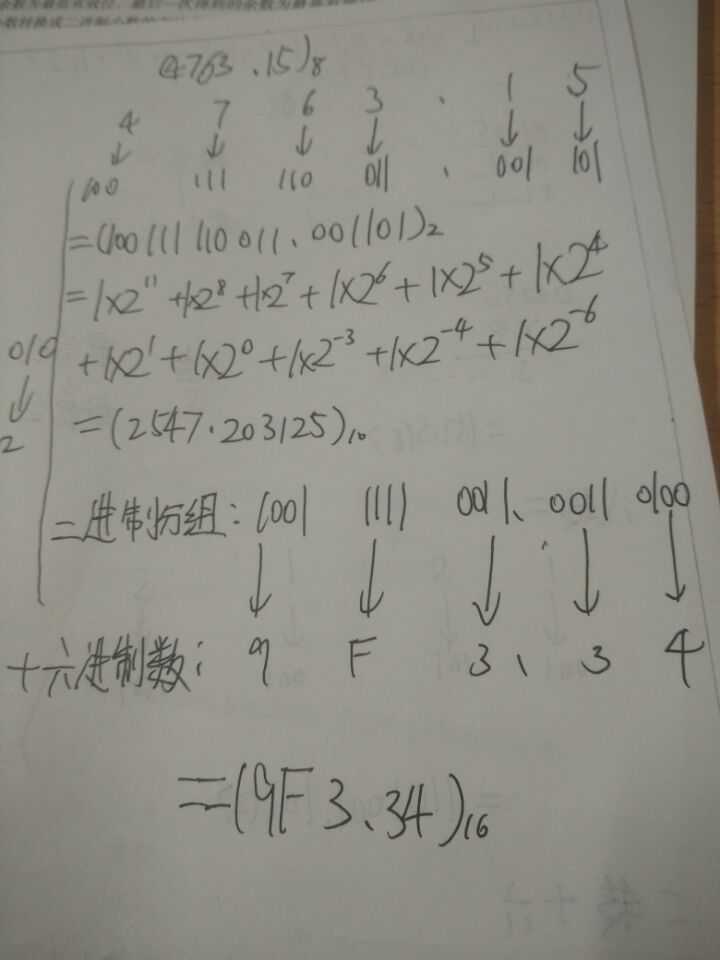 (4763.15)₈
4 7 6 3 . 1 5
↓ ↓ ↓ ↓ ↓ ↓
100 111 110 011 . 001 101
=(100111110011.001101)₂
=1×2¹¹+1×2⁸+1×2⁷+1×2⁶+1×2⁵+1×2⁴
+1×2¹+1×2⁰+1×2⁻³+1×2⁻⁴+1×2⁻⁶
=(2547.203125)₁₀
010
↓
2
二进制分组:1001 1111 0011.0011 0100
↓ ↓ ↓ ↓ ↓
十六进制数:9 F 3.3 4
=(9F3.34)₁₆